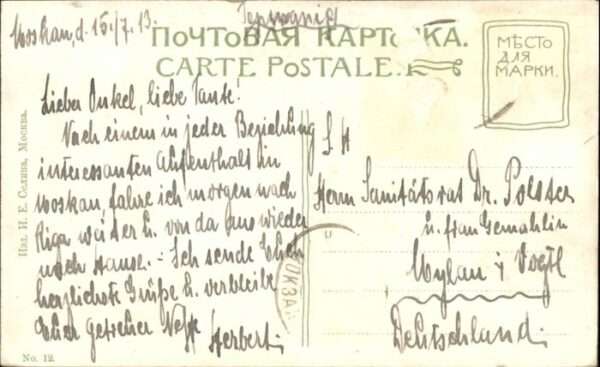 Moskau, d. 15./7. 13.
Германія
ПОЧТОВАЯ КАРТОЧКА.
CARTE POSTALE.
МѢСТО
ДЛЯ
МАРКИ.
Lieber Onkel, liebe Tante!
Nach einem in jeder Beziehung
interessanten Aufenthalt in
Moskau fahre ich morgen nach
Riga weiter u. von da aus wieder
nach Hause. - Ich sende Euch
herzlichste Grüße u. verbleibe
Euer getreuer Neffe Herbert.
S. H
Herrn Sanitätsrat Dr. Polster
u. Frau Gemahlin
Mylau i/ Vogtl
Deutschland.
ВОКЗАЛ
Изд. И. Е. Селина, Москва.
No. 12.